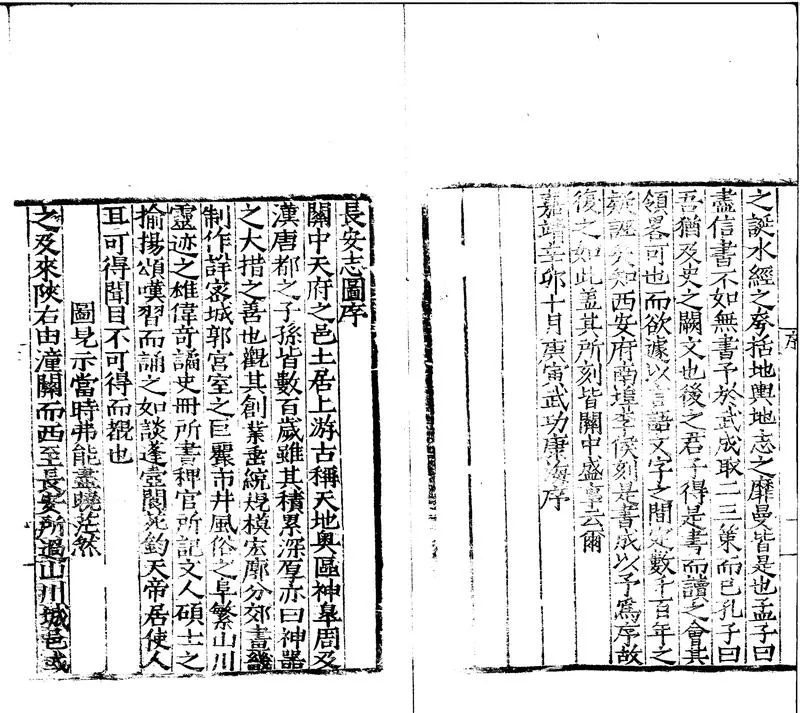 之誕水經之
括地輿地志之靡曼皆是也孟子曰
盡信書不如無書予於武成取二三策而已孔子曰
吾猶及史之闕文也後之君子得是書而讀之會其
領畧可也而欲據以言語文字之間定數千百年之
疑誣矣知西安府南埠李侯刻是書成以予為序故
復之如此葢其所刻皆關中盛事云爾
嘉靖辛卯十月庚寅武功康海序
序
長安志圖序
關中天府之邑土居上游古稱天地輿區神皐周及
漢唐都之子孫皆數百歲雖其積累深厚亦曰神器
之大措之善也觀其創業垂統規模宏廓分郊畫畿
制作詳宻城郭宮室之巨麗市井風俗之阜繁山川
靈迹之雄偉奇譎史冊所書稗官所記文人碩士之
揄揚頌嘆習而誦之如談蓬壺閬苑鈞天帝居使人
耳可得聞目不可得而覩也
圖見示當時弗能盡曉茫然
之及來陝右由潼關而西至長安所過山川城邑或